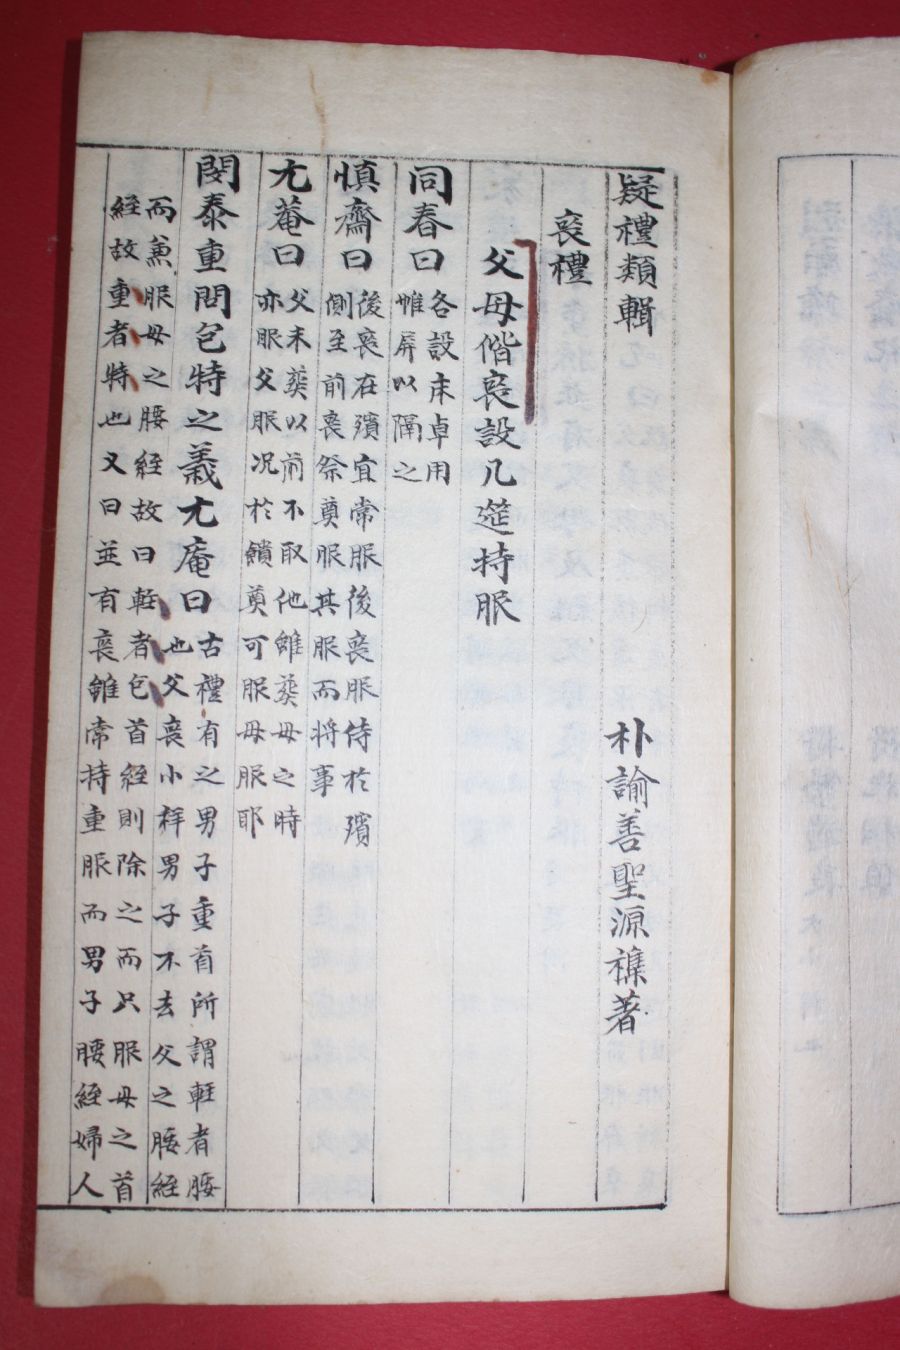 疑禮類輯　朴諭善聖源襍著
喪禮
父母偕喪設几筵持服
同春曰
各設床卓用
帷屏以隔之
愼齋曰
後喪在殯宜常服後喪服侍於殯
側至前喪祭奠服其服而将事
尤菴曰
父未葬以前不取他雖葬母之時
亦服父服况於饋奠可服母服耶
閔泰重問包特之義尤庵曰
古禮有之男子重首所謂輕者腰
也父喪小祥男子不去父之腰絰
而兼服母之腰絰故曰輕者包首絰則除之而只服母之首
絰故重者特也又曰並有喪雖常持重服而男子腰絰婦人